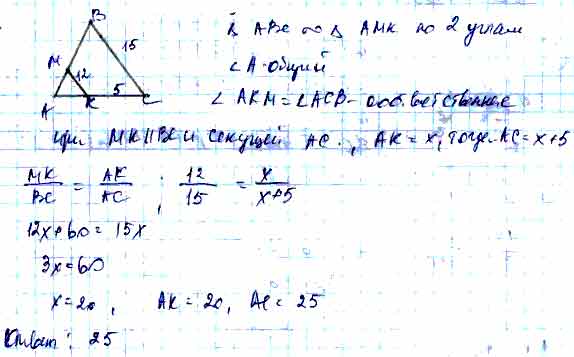 B
M 12 15
A K 5 C
Δ ABC ∾ Δ AMK по 2 углам
∠A-общий
∠AKM=∠ACB-соответственные
при MK||BC и секущей AC., AK=x, тогда AC=x+5
MK/BC = AK/AC ; 12/15 = x/x+5
12x+60=15x
3x=60
x=20, AK=20, AC=25
Ответ: 25